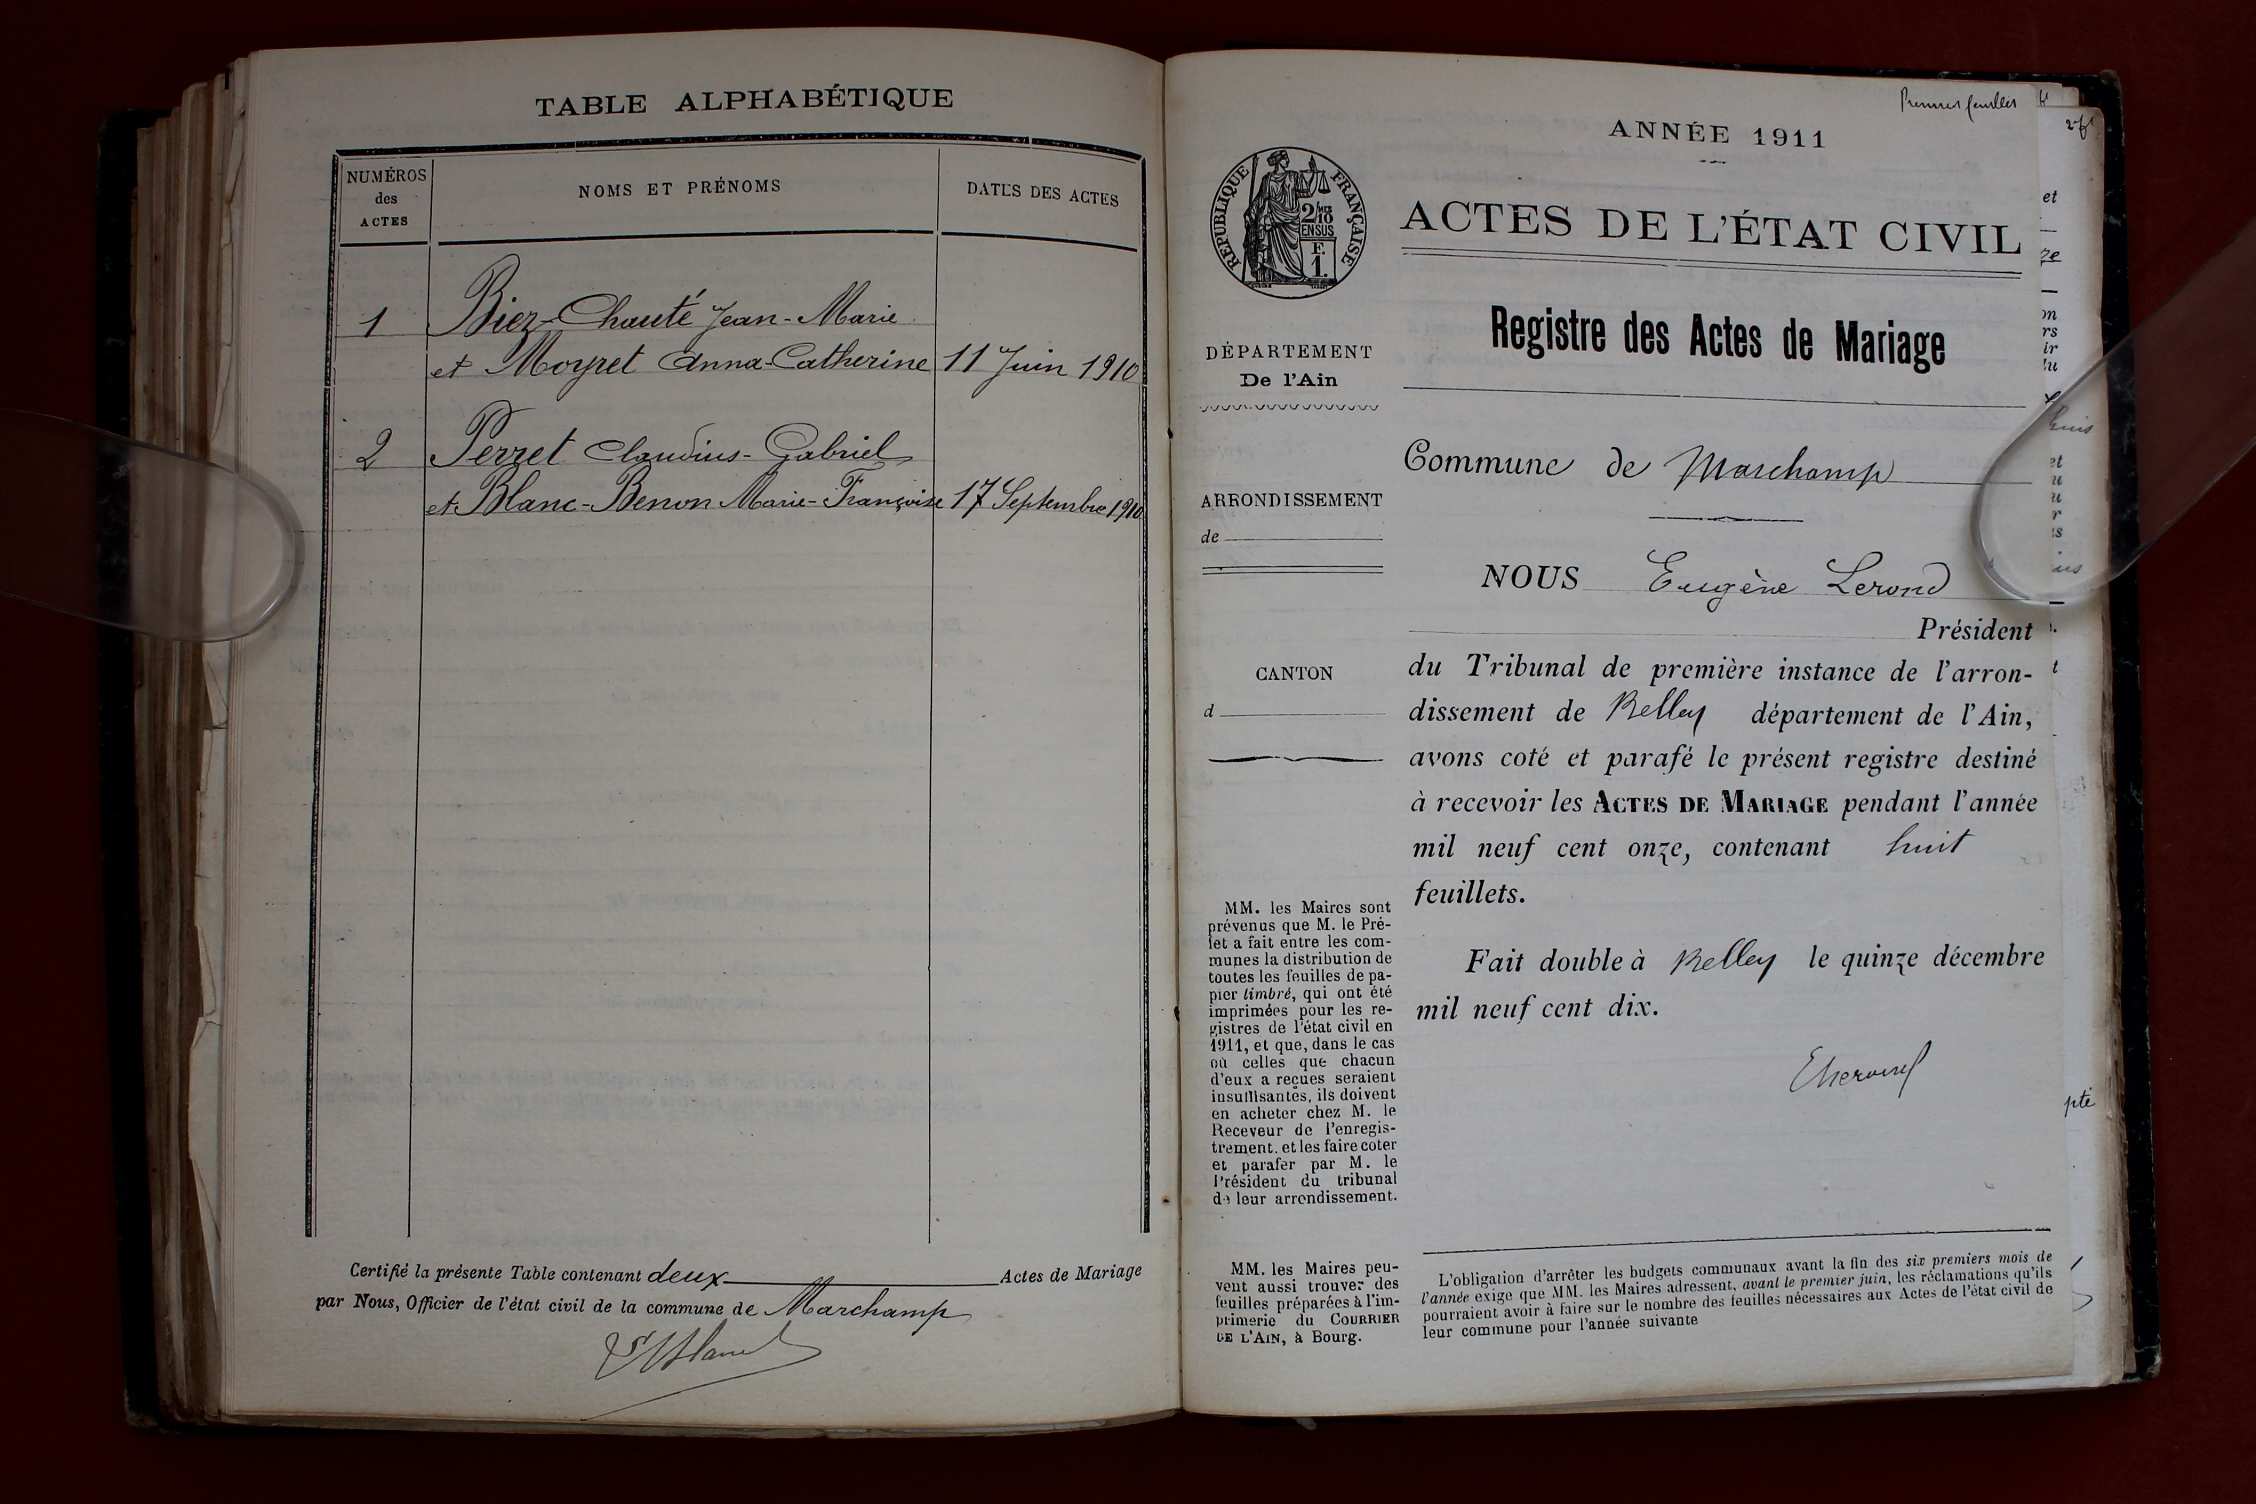 TABLE ALPHABÉTIQUE
NUMÉROS
des
ACTES
NOMS ET PRÉNOMS
DATES DES ACTES
1 Biez-Chauté Jean-Marie
et Moyret Anna-Catherine 11 Juin 1910
2 Perret Claudius-Gabriel
et Blanc-Benon Marie-Françoise 17 Septembre 1910
Certifié la présente Table contenant deux Actes de Mariage
par Nous, Officier de l'état civil de la commune de Marchamp
Premier feuillet
ANNÉE 1911
RÉPUBLIQUE FRANÇAISE
2/10
EN SUS
F.
1.
ACTES DE L'ÉTAT CIVIL
Registre des Actes de Mariage
DÉPARTEMENT
De l'Ain
ARRONDISSEMENT
de
CANTON
d
MM. les Maires sont
prévenus que M. le Pré-
fet a fait entre les com-
munes la distribution de
toutes les feuilles de pa-
pier timbré, qui ont été
imprimées pour les re-
gistres de l'état civil en
1911, et que, dans le cas
où celles que chacun
d'eux a reçues seraient
insuffisantes, ils doivent
en acheter chez M. le
Receveur de l'enregis-
trement. et les faire coter
et parafer par M. le
Président du tribunal
de leur arrondissement.
MM. les Maires peu-
vent aussi trouver des
feuilles préparées à l'im-
primerie du COURRIER
DE L'AIN, à Bourg.
Commune de Marchamp
NOUS Eugène Lerond
Président
du Tribunal de première instance de l'arron-
dissement de Belley département de l'Ain,
avons coté et parafé le présent registre destiné
à recevoir les ACTES DE MARIAGE pendant l'année
mil neuf cent onze, contenant huit
feuillets.
Fait double à Belley le quinze décembre
mil neuf cent dix.
L'obligation d'arrêter les budgets communaux avant la fin des six premiers mois de
l'année exige que MM. les Maires adressent, avant le premier juin, les réclamations qu'ils
pourraient avoir à faire sur le nombre des feuilles nécessaires aux Actes de l'état civil de
leur commune pour l'année suivante